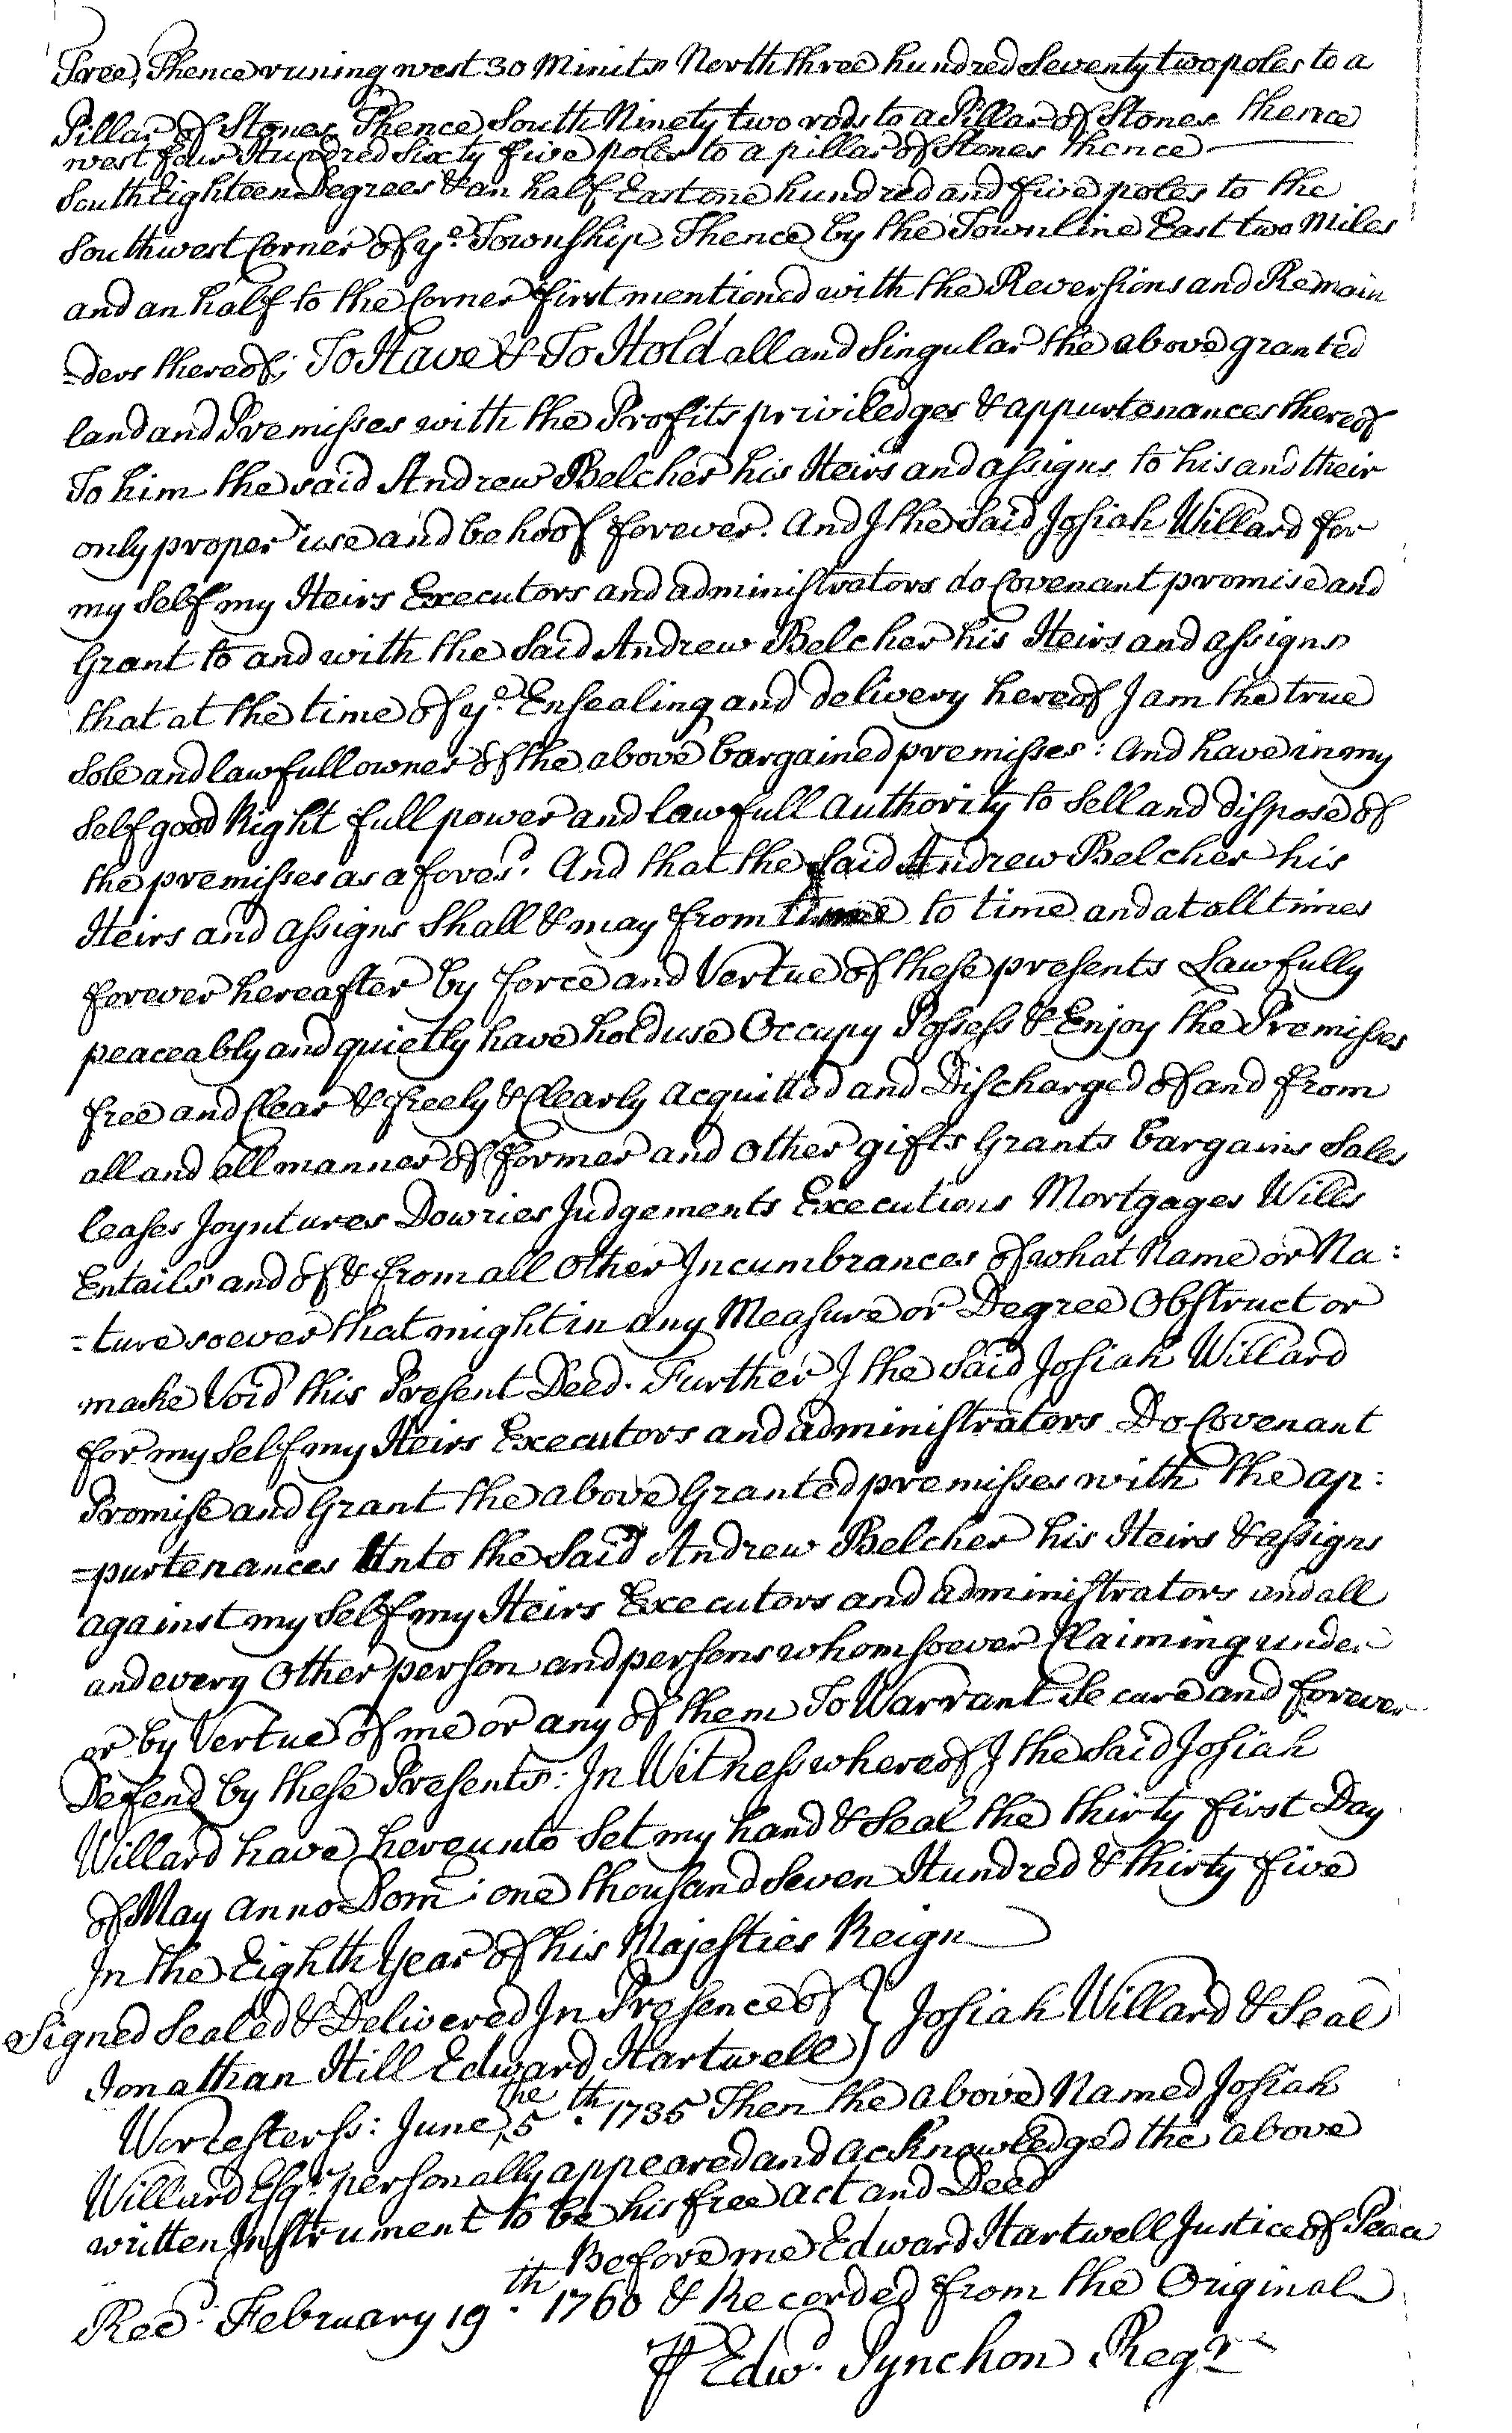 Tree, Thence runing west 30 Minits North three hundred Seventy two poles to a
Pillar of Stones Thence South Ninety two rods to a Pillar of Stones thence
west four Hundred Sixty five poles to a pillar of Stones thence
South Eighteen Degrees & an half East one hundred and five poles to the
Southwest Corner of ye. Township, Thence by the Townline East two Miles
and an half to the Corner first mentioned with the Reversions and Remain
=ders thereof; To Have & To Hold all and Singular the above granted
land and Premisses with the Profits priviledges & appurtenances thereof
To him the said Andrew Belcher his Heirs and assigns to his and their
only proper use and behoof forever. And I the Said Josiah Willard for
my Self my Heirs Executors and administrators do Covenant promise and
Grant to and with the Said Andrew Belcher his Heirs and assigns
that at the time of ye. Ensealing and delivery hereof I am the true
Sole and lawfull owner of the above bargained premisses: And have in my
Self good Right full power and lawfull authority to Sell and dispose of
the premisses as afores.d And that the Said Andrew Belcher his
Heirs and assigns Shall & may from time to time and at all times
forever hereafter by force and Vertue of these presents Lawfully
peaceably and quietly have hold use Occupy Possess & Enjoy the Premisses
free and Clear & freely & Clearly acquitted and Discharged of and from
all and all manner of former and other gifts Grants bargains Sales
leases Joyntures Dowries Judgements Executions Mortgages Wills
Entails and of & from all other Incumbrances of what Name or Na:
=ture soever that might in any Measure or Degree Obstruct or
make Void this Present Deed. Further I the Said Josiah Willard
for my Self my Heirs Executors and administrators Do Covenant
Promise and Grant the above Granted premisses with the ap:
=purtenances Unto the Said Andrew Belcher his Heirs & assigns
against my Self my Heirs Executors and administrators and all
and every Other person and persons whomsoever Claiming under
or by Vertue of me or any of them To Warrant Secure and forever
Defend by these Presents: In Witness whereof I the Said Josiah
Willard have hereunto Set my hand & Seal the thirty first Day
of May anno Dom: one thousand Seven Hundred & thirty five
In the Eighth Year of his Majesties Reign
Signed Sealed & Delivered In Presence of } Josiah Willard & Seal
Jonathan Hill Edward Hartwell
Worcesterss: June the 5th. 1735 Then the above Named Josiah
Willard Esqr. personally appeared and acknowledged the above
written Instrument to be his free act and Deed
Before me Edward Hartwell Justice of Peace
Recd. February 19th. 1760 & Recorded from the Original
⅌ Edwd. Pynchon Regr.